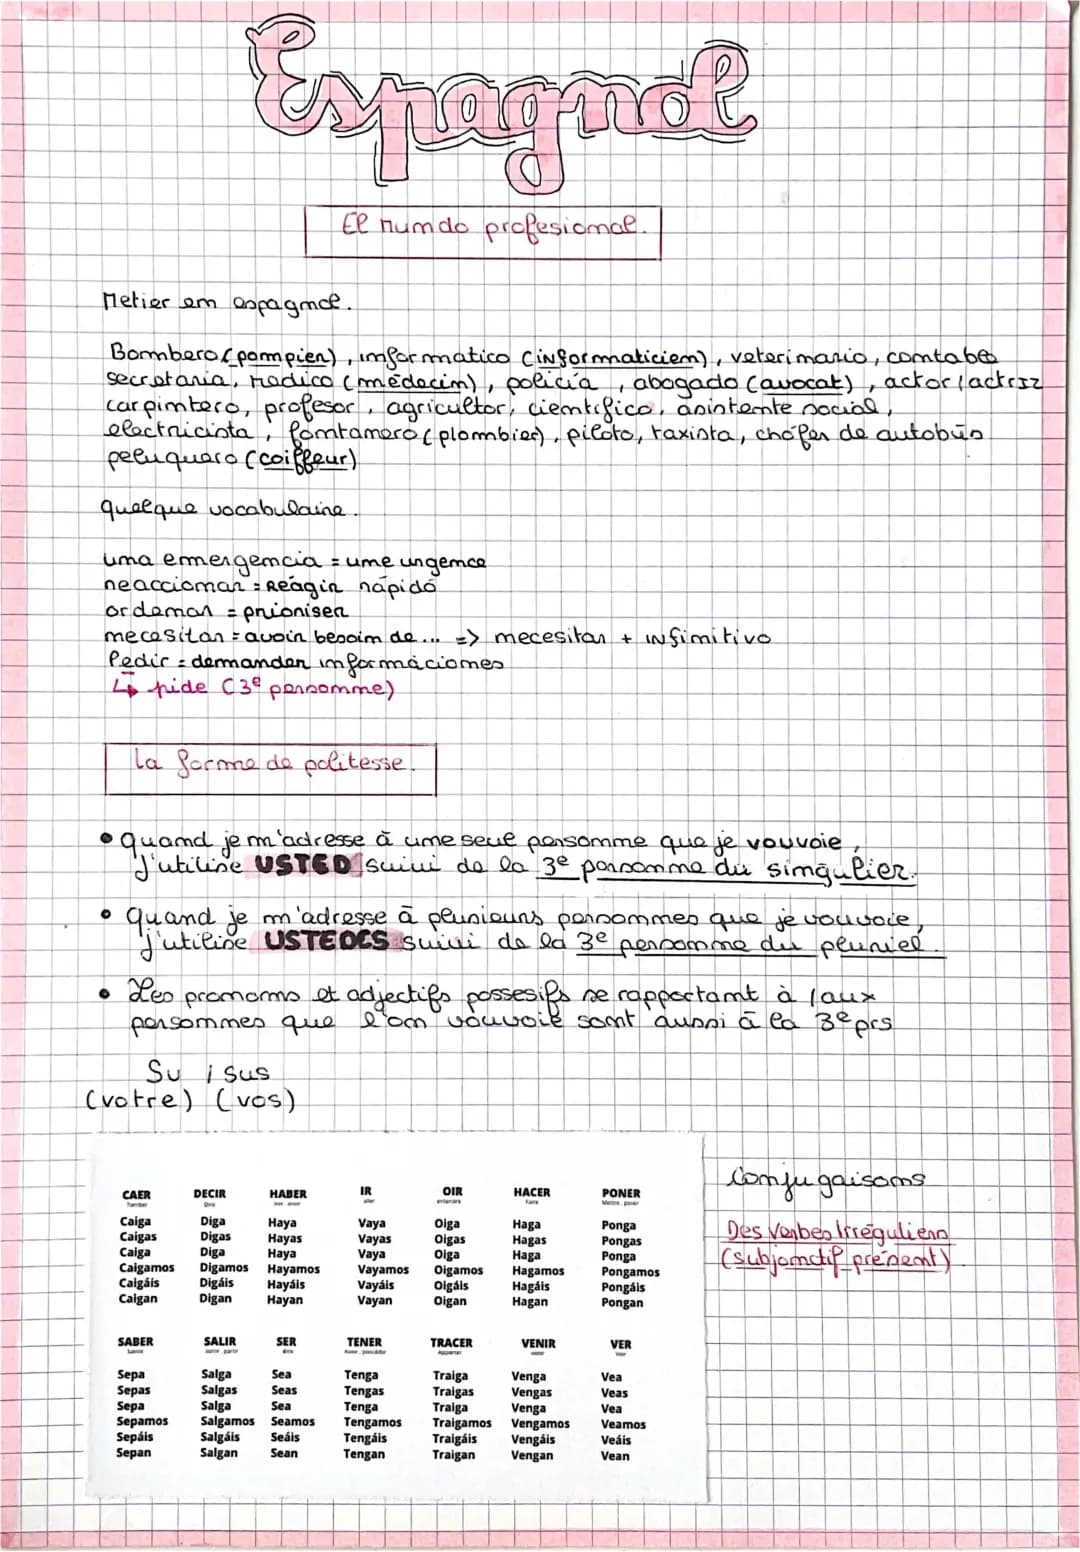 Espagnol
El mundo profesional.
Metier en espagnol.
Bombero (pompier), informatico (informaticien), veterinario, comtable
secretaria, medico (médecin), policía, abogado (avocat), actor/actriz
carpintero, profesor, agricultor, cientifico, asistente social,
electricista, fontanero (plombier), piloto, taxista, chófer de autobús
peluquero (coiffeur)
quelque vocabulaire.
una emergencia = une urgence
reaccionar = Réagir rápido
ordenar = prioriser
necesitar = avoir besoin de ... => necesitar + infinitivo
Pedir = demander informáciones
↳ pide (3e personne)
la forme de politesse.
• quand je m'adresse à une seule personne que je vouvoie,
J'utilise USTED suivi de la 3e personne du singulier.
• quand je m'adresse à plusieurs personnes que je vouvoie,
j'utilise USTEDES suivi de la 3e personne du pluriel.
• Les pronoms et adjectifs possesifs se rapportant à /aux
personnes que l'on vouvoie sont aussi à la 3e prs
Su / sus
(votre) (vos)
Conjugaisons
Des Verbes Irréguliers
(subjonctif présent)
CAER DECIR HABER IR OIR HACER PONER
Tomber Dire aller Faire
Caiga Diga Haya Vaya Oiga Haga Ponga
Caigas Digas Hayas Vayas Oigas Hagas Pongas
Caiga Diga Haya Vaya Oiga Haga Ponga
Caigamos Digamos Hayamos Vayamos Oigamos Hagamos Pongamos
Caigáis Digáis Hayáis Vayáis Oigáis Hagáis Pongáis
Caigan Digan Hayan Vayan Oigan Hagan Pongan
SABER SALIR SER TENER TRACER VENIR VER
Sepa Salga Sea Tenga Traiga Venga Vea
Sepas Salgas Seas Tengas Traigas Vengas Veas
Sepa Salga Sea Tenga Traiga Venga Vea
Sepamos Salgamos Seamos Tengamos Traigamos Vengamos Veamos
Sepáis Salgáis Seáis Tengáis Traigáis Vengáis Veáis
Sepan Salgan Sean Tengan Traigan Vengan Vean